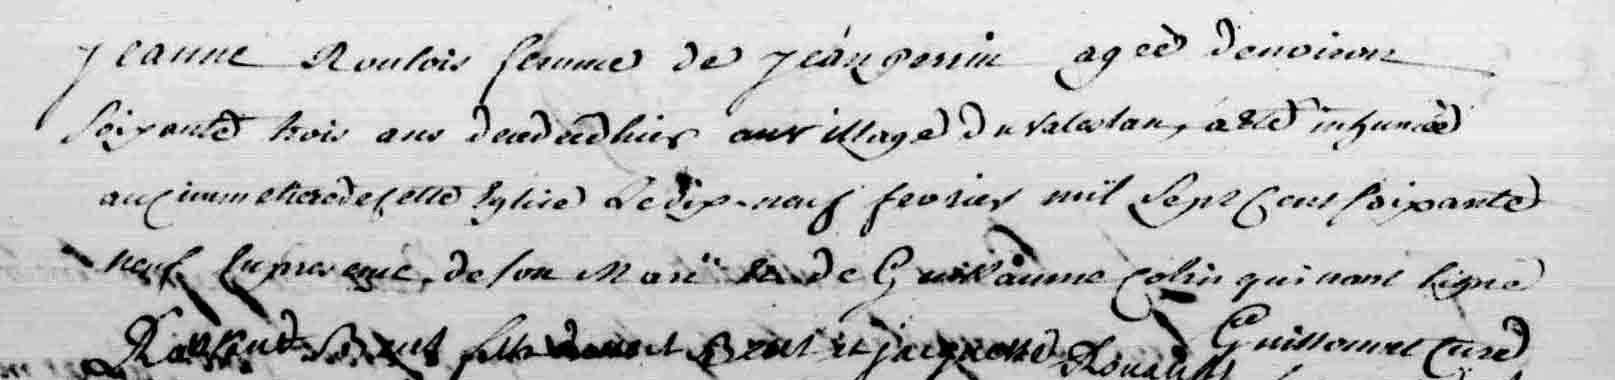 Jeanne Roulois femme de jean perrin ageé d'environ
soixante trois ans decedeé hier au village du valestan, a eté inhumeé
au cimmetiere de cette Eglise Le dix-neuf fevrier mil sept cent soixante
neuf En presence de son Mari & de Guillaume Colin qui n'ont signé
fille Brut et jacquette Rouault Guillouet Curé